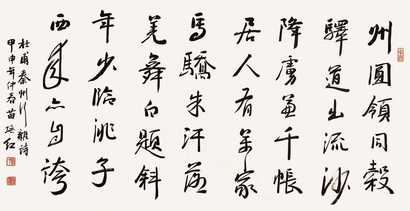 州圖領同穀
驛道出流沙
降虜兼千帳
居人有萬家
馬驕朱汗落
羌舞白題斜
年少臨洮子
西來亦自誇
杜甫秦州行雜詩
甲申年仲春苗培红